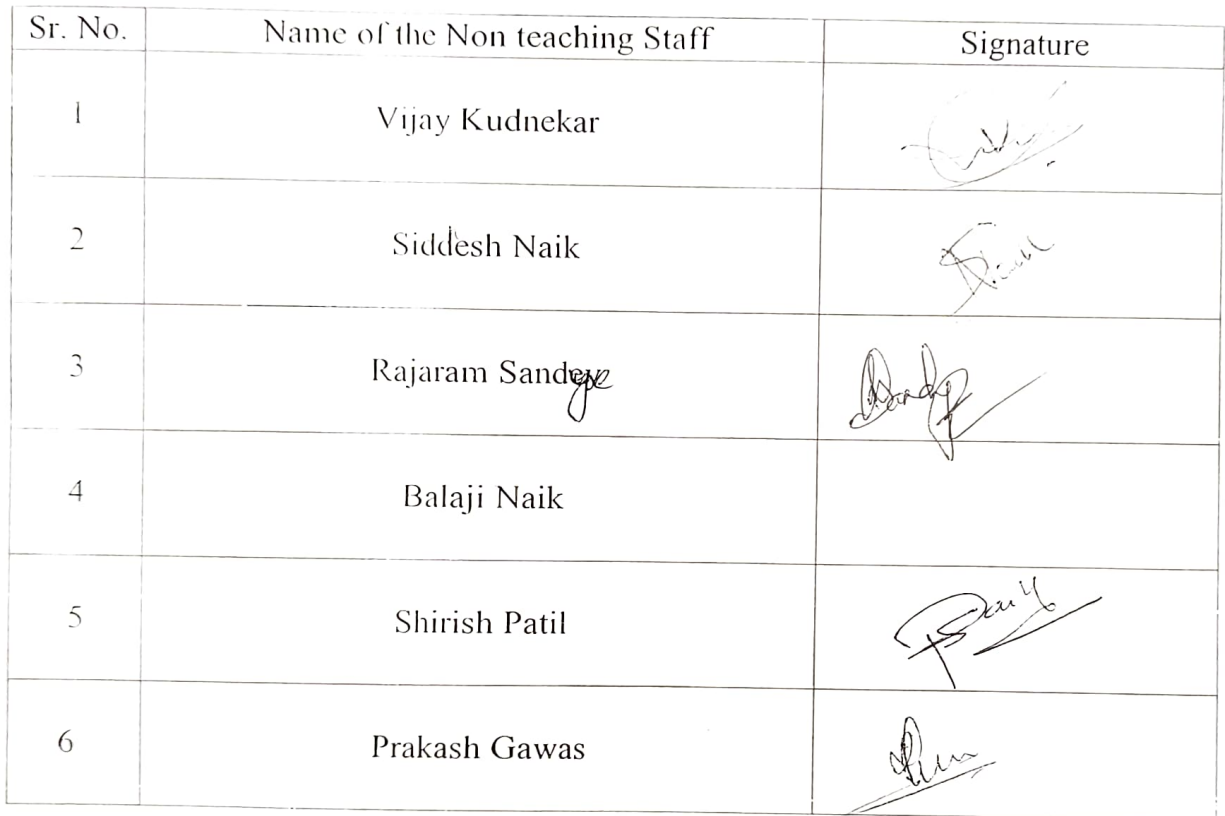 Sr. No. Name of the Non teaching Staff Signature
1 Vijay Kudnekar
2 Siddesh Naik
3 Rajaram Sandye
4 Balaji Naik
5 Shirish Patil
6 Prakash Gawas